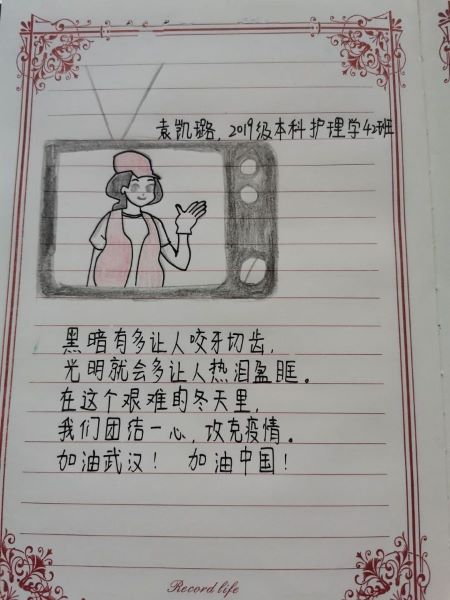 袁凯璐，2019级本科护理学42班
黑暗有多让人咬牙切齿，
光明就会多让人热泪盈眶。
在这个艰难的冬天里，
我们团结一心，攻克疫情。
加油武汉！ 加油中国！
Record life